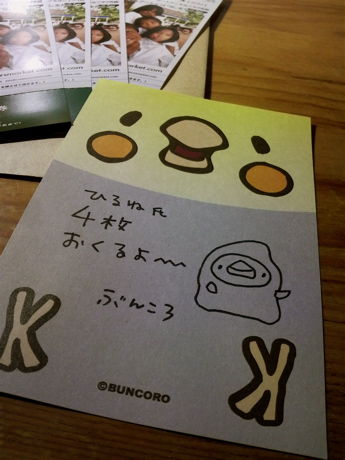 ひるね氏
4枚
おくるよ〜
ぶんころ
©BUNCORO